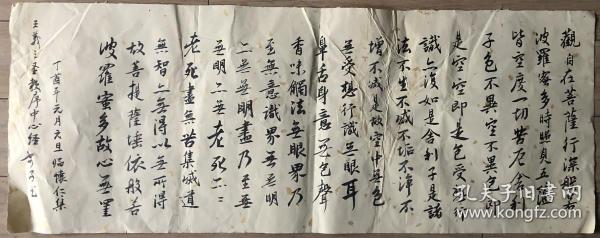 觀自在菩薩行深般若
波羅蜜多時照見五蘊
皆空度一切苦厄舍利
子色不異空空不異色色即
是空空即是色受想行
識亦復如是舍利子是諸
法不生不滅不垢不淨不
增不減是故空中無色
無受想行識無眼耳
鼻舌身意無色聲
香味觸法無眼界乃
至無意識界無無明
亦無無明盡乃至無
老死亦無老死盡
無苦集滅道
無智亦無得以無所得
故菩提薩埵依般若
波羅蜜多故心無罣
丁酉年元月六日臨懷仁集
王羲之聖教序中心經
孔子旧书网
kongfz.com